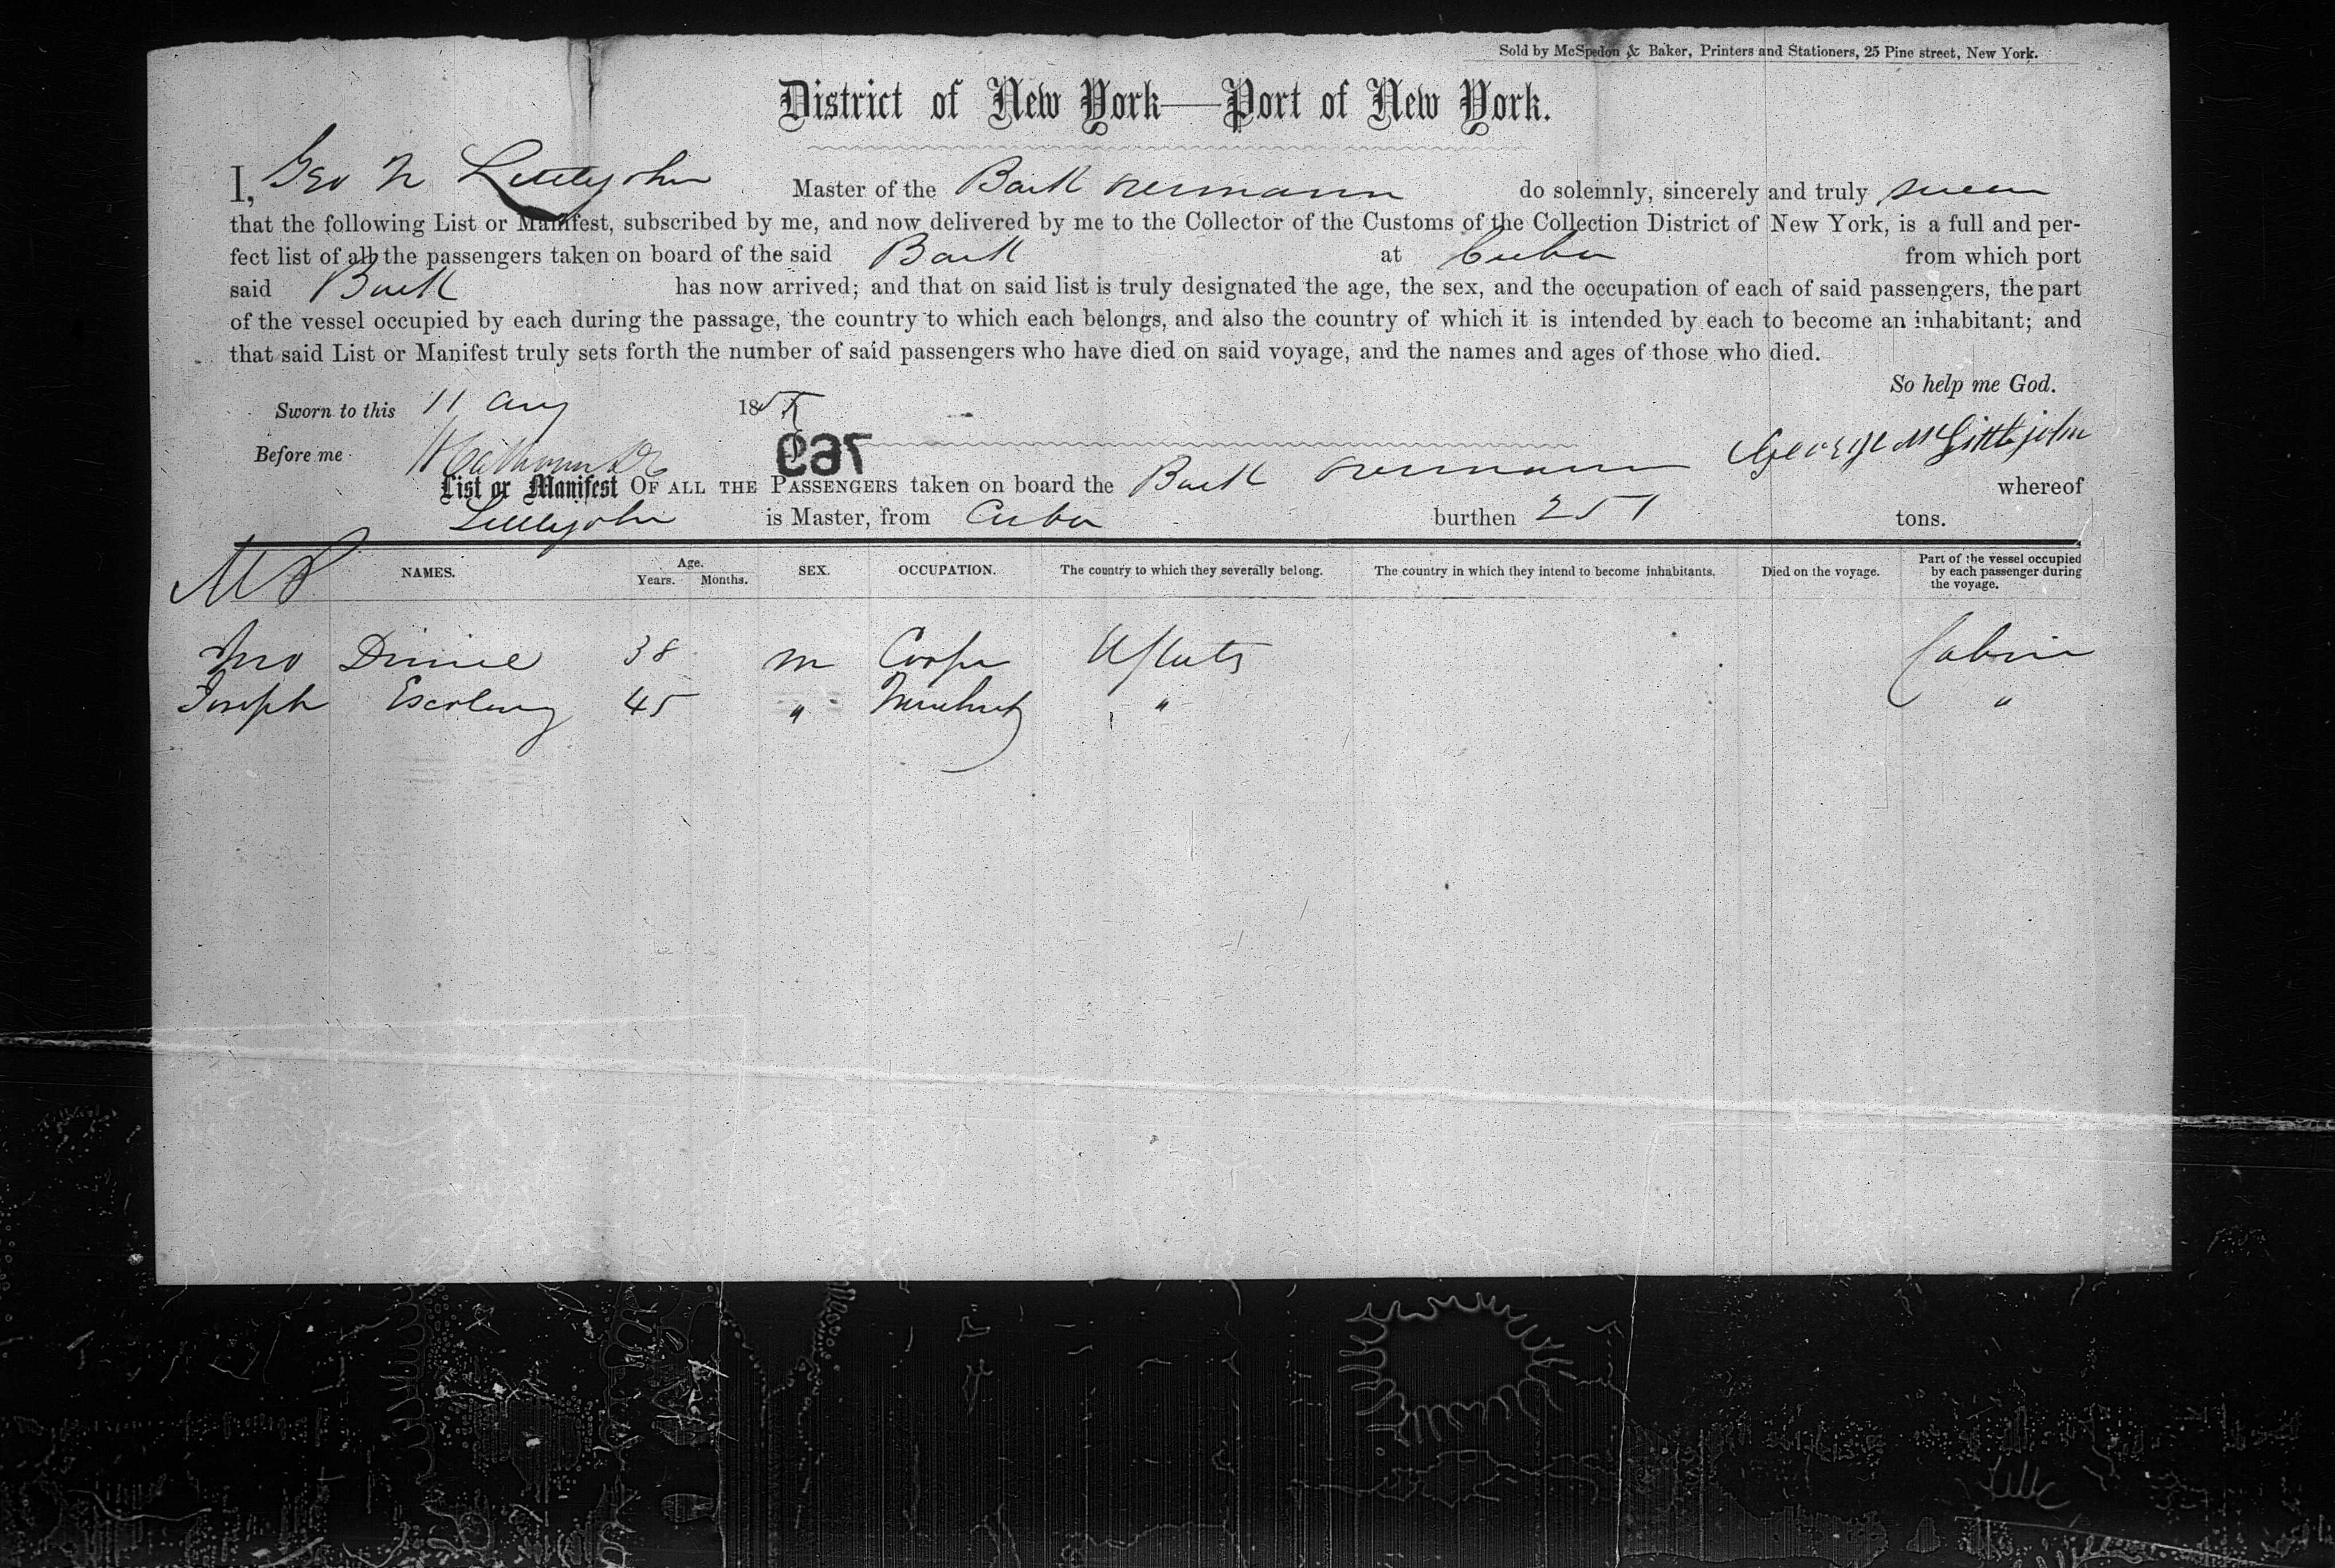 Sold by McSpedon & Baker, Printers and Stationers, 25 Pine street, New York.
District of New York—Port of New York.
I, Geo N Littlejohn Master of the Bark do solemnly, sincerely and truly swear
that the following List or Manifest, subscribed by me, and now delivered by me to the Collector of the Customs of the Collection District of New York, is a full and per-
fect list of all the passengers taken on board of the said Bark at Cuba from which port
said Bark has now arrived; and that on said list is truly designated the age, the sex, and the occupation of each of said passengers, the part
of the vessel occupied by each during the passage, the country to which each belongs, and also the country of which it is intended by each to become an inhabitant; and
that said List or Manifest truly sets forth the number of said passengers who have died on said voyage, and the names and ages of those who died.
So help me God.
Sworn to this 11 Aug 1855
Before me George Littlejohn
List or Manifest OF ALL THE PASSENGERS taken on board the Bark whereof
Littlejohn is Master, from Cuba burthen 251 tons.
NAMES. Age. Years. Months. SEX. OCCUPATION. The country to which they severally belong. The country in which they intend to become inhabitants. Died on the voyage. Part of the vessel occupied by each passenger during the voyage.
Jno 38 m Cooper UStates Cabin
Joseph 45 " Merchant " "